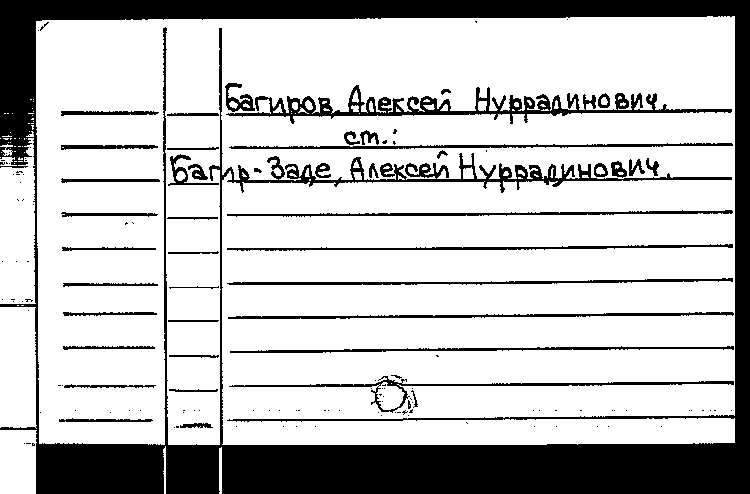 Багиров, Алексей Нуррадинович.
ст.:
Багир-Заде, Алексей Нуррадинович.